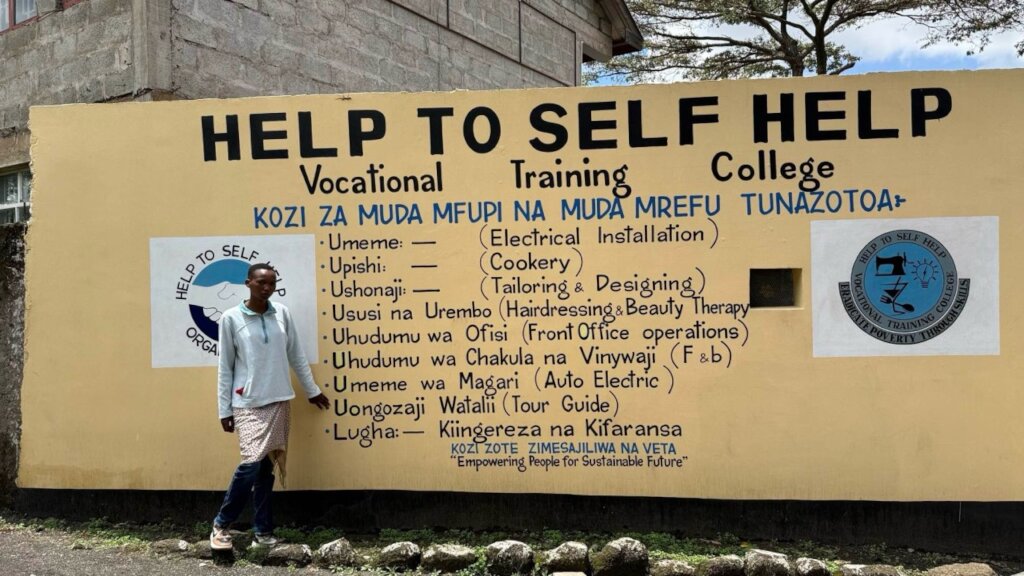 HELP TO SELF HELP
Vocational Training College
KOZI ZA MUDA MFUPI NA MUDA MREFU TUNAZOTOA:-
HELP TO SELF HELP
ORGA
• Umeme: — (Electrical Installation)
• Upishi: — (Cookery)
• Ushonaji: — (Tailoring & Designing)
• Ususi na Urembo (Hairdressing & Beauty Therapy
• Uhudumu wa Ofisi (Front Office operations)
• Uhudumu wa Chakula na Vinywaji (F & b)
• Umeme wa Magari (Auto Electric)
• Uongozaji Watalii (Tour Guide)
• Lugha:— Kiingereza na Kifaransa
KOZI ZOTE ZIMESAJILIWA NA VETA
"Empowering People for Sustainable Future"
HELP TO SELF HELP
VOCATIONAL TRAINING COLLEGE
ERADICATE POVERTY THROUGH SKILLS